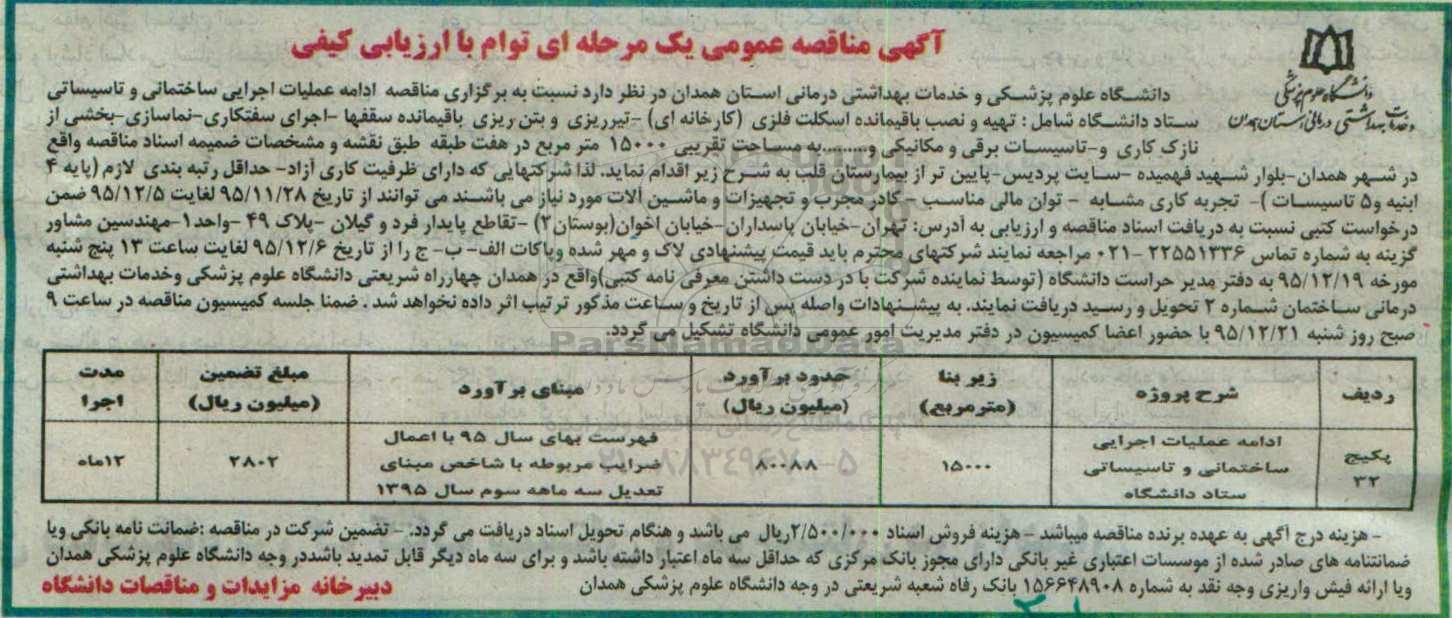 آگهی مناقصه عمومی یک مرحله ای توام با ارزیابی کیفی
دانشگاه علوم پزشکی
و خدمات بهداشتی درمانی استان همدان
دانشگاه علوم پزشکی و خدمات بهداشتی درمانی استان همدان در نظر دارد نسبت به برگزاری مناقصه ادامه عملیات اجرایی ساختمانی و تاسیساتی
ستاد دانشگاه شامل : تهیه و نصب باقیمانده اسکلت فلزی (کارخانه ای) -تیرریزی و بتن ریزی باقیمانده سقفها -اجرای سفتکاری-نماسازی-بخشی از
نازک کاری و-تاسیسات برقی و مکانیکی و.........به مساحت تقریبی ۱۵۰۰۰ متر مربع در هفت طبقه طبق نقشه و مشخصات ضمیمه اسناد مناقصه واقع
در شهر همدان-بلوار شهید فهمیده -سایت پردیس-پایین تر از بیمارستان قلب به شرح زیر اقدام نماید. لذا شرکتهایی که دارای ظرفیت کاری آزاد- حداقل رتبه بندی لازم (پایه ۴
ابنیه و۵ تاسیسات )- تجربه کاری مشابه - توان مالی مناسب - کادر مجرب و تجهیزات و ماشین آلات مورد نیاز می باشند می توانند از تاریخ ۹۵/۱۱/۲۸ لغایت ۹۵/۱۲/۵ ضمن
درخواست کتبی نسبت به دریافت اسناد مناقصه و ارزیابی به آدرس: تهران-خیابان پاسداران-خیابان اخوان(بوستان۲) -تقاطع پایدار فرد و گیلان -پلاک ۴۹ -واحد۱-مهندسین مشاور
گزینه به شماره تماس ۲۲۵۵۱۳۳۶ -۰۲۱ مراجعه نمایند شرکتهای محترم باید قیمت پیشنهادی لاک و مهر شده وپاکات الف- ب- ج را از تاریخ ۹۵/۱۲/۶ لغایت ساعت ۱۳ پنج شنبه
مورخه ۹۵/۱۲/۱۹ به دفتر مدیر حراست دانشگاه (توسط نماینده شرکت با در دست داشتن معرفی نامه کتبی)واقع در همدان چهارراه شریعتی دانشگاه علوم پزشکی وخدمات بهداشتی
درمانی ساختمان شماره ۲ تحویل و رسید دریافت نمایند. به پیشنهادات واصله پس از تاریخ و ساعت مذکور ترتیب اثر داده نخواهد شد . ضمنا جلسه کمیسیون مناقصه در ساعت ۹
صبح روز شنبه ۹۵/۱۲/۲۱ با حضور اعضا کمیسیون در دفتر مدیریت امور عمومی دانشگاه تشکیل می گردد.
ParsNamadData
ردیف شرح پروژه زیر بنا (مترمربع) حدود برآورد (میلیون ریال) مبنای برآورد مبلغ تضمین (میلیون ریال) مدت اجرا
پکیج ۳۲ ادامه عملیات اجرایی ساختمانی و تاسیساتی ستاد دانشگاه ۱۵۰۰۰ ۸۰۰۸۸ فهرست بهای سال ۹۵ با اعمال ضرایب مربوطه با شاخص مبنای تعدیل سه ماهه سوم سال ۱۳۹۵ ۲۸۰۲ ۱۲ماه
- هزینه درج آگهی به عهده برنده مناقصه میباشد - هزینه فروش اسناد ۲/۵۰۰/۰۰۰ریال می باشد و هنگام تحویل اسناد دریافت می گردد. - تضمین شرکت در مناقصه :ضمانت نامه بانکی ویا
ضمانتنامه های صادر شده از موسسات اعتباری غیر بانکی دارای مجوز بانک مرکزی که حداقل سه ماه اعتبار داشته باشد و برای سه ماه دیگر قابل تمدید باشددر وجه دانشگاه علوم پزشکی همدان
ویا ارائه فیش واریزی وجه نقد به شماره ۱۵۶۶۴۸۹۰۸ بانک رفاه شعبه شریعتی در وجه دانشگاه علوم پزشکی همدان
دبیرخانه مزایدات و مناقصات دانشگاه